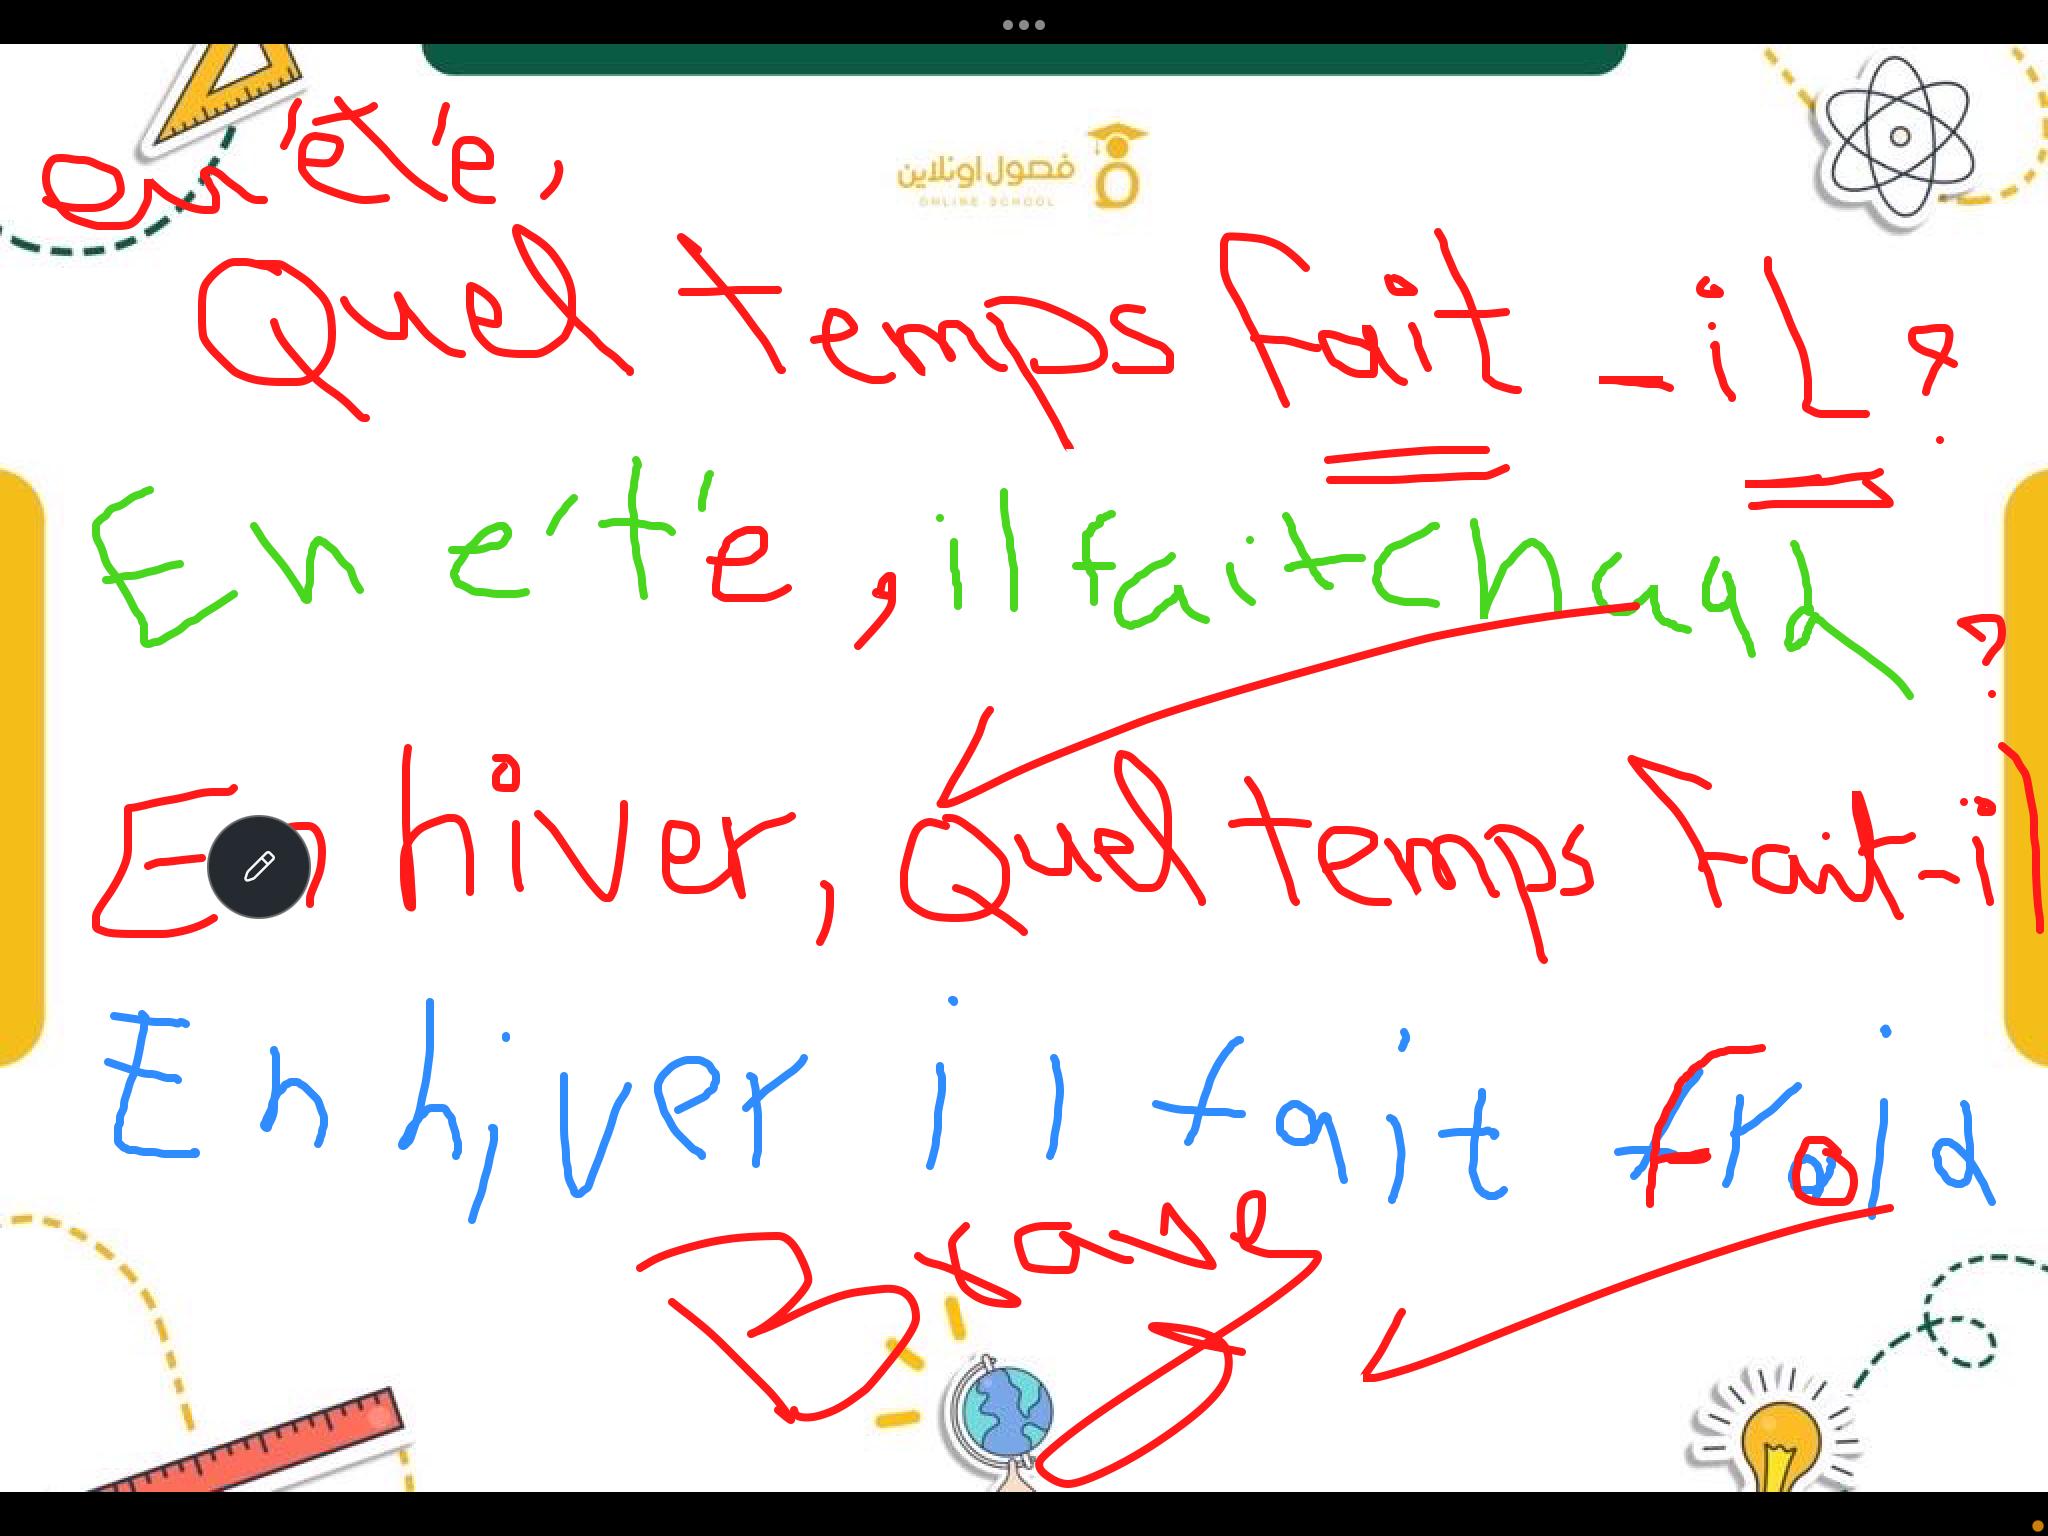 en été,
فصول اونلاين
ONLINE SCHOOL
Quel temps fait-il?
En été, il fait chaud
En hiver, Quel temps fait-il?
En hiver il fait froid
Brave